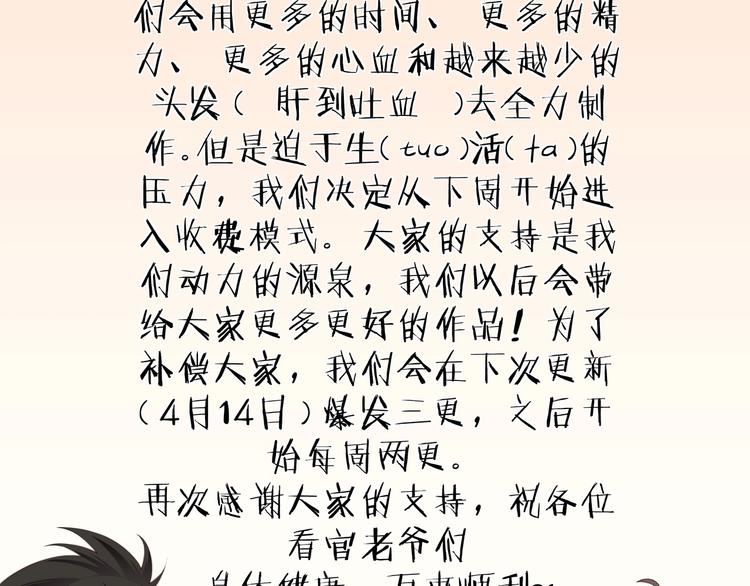 们会用更多的时间、 更多的精
力、 更多的心血和越来越少的
头发( 肝到吐血 )去全力制
作。但是迫于生(tuo)活(fa)的
压力，我们决定从下周开始进
入收费模式。大家的支持是我
们动力的源泉，我们以后会带
给大家更多更好的作品！为了
补偿大家，我们会在下次更新
(4月14日)爆发三更，之后开
始每周两更。
再次感谢大家的支持，祝各位
看官老爷们
身体健康，万事顺利~